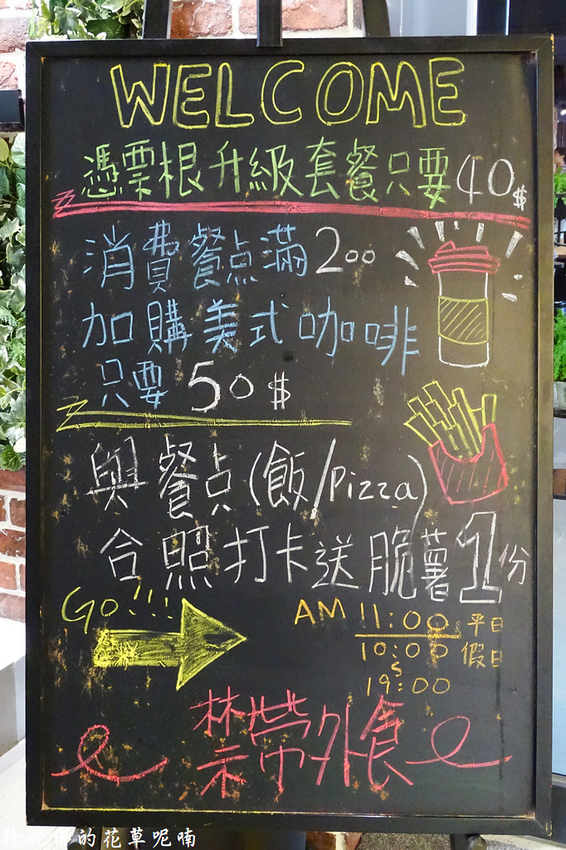 WELCOME
憑票根升級套餐只要40$
消費餐点滿200
加購美式咖啡
只要50$
與餐点(飯/Pizza)
合照打卡送脆薯1份
GO!!!
AM 11:00 平日
10:00 假日
~
19:00
禁帶外食
的花草呢喃